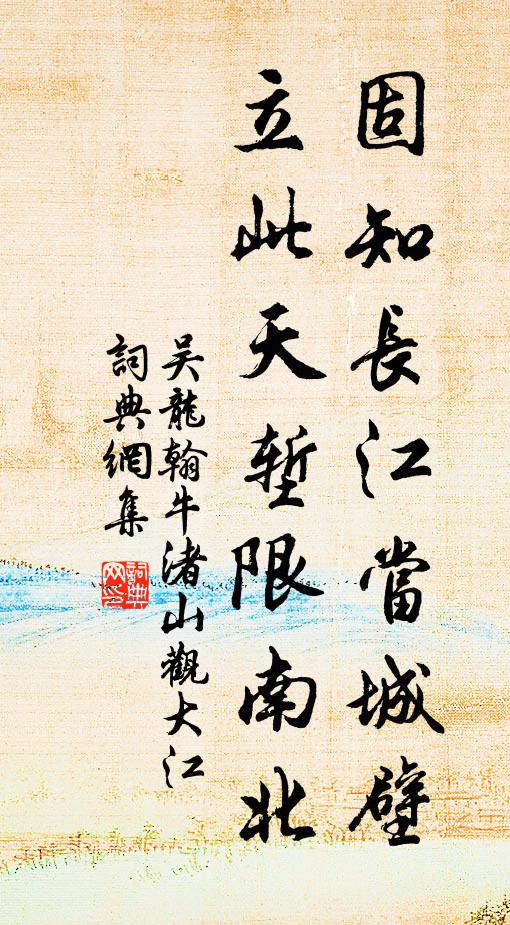 固知長江當城壁
立此天塹限南北
吴龍翰牛渚山觀大江
詞典網集
詞典网印